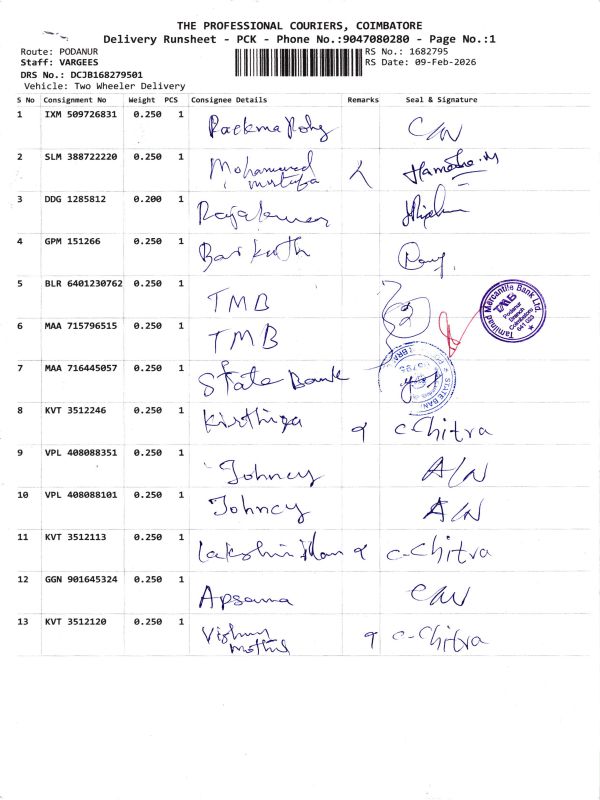 THE PROFESSIONAL COURIERS, COIMBATORE
Delivery Runsheet - PCK - Phone No.:9047080280 - Page No.:1
Route: PODANUR
RS No.: 1682795
Staff: VARGEES
RS Date: 09-Feb-2026
DRS No.: DCJB168279501
Vehicle: Two Wheeler Delivery
S No Consignment No Weight PCS Consignee Details Remarks Seal & Signature
1 IXM 509726831 0.250 1 C/N
2 SLM 388722220 0.250 1 Mohammed
Mustafa
3 DDG 1285812 0.200 1 Rajakumar
4 GPM 151266 0.250 1 Barkath
5 BLR 6401230762 0.250 1 TMB
Tamilnad Mercantile Bank Ltd.
TMB
Podanur
Branch
Coimbatore
641 023
6 MAA 715796515 0.250 1 TMB
7 MAA 716445057 0.250 1 State Bank
STATE BAN
8 KVT 3512246 0.250 1 Kirthiga c-Chitra
9 VPL 408088351 0.250 1 Johncy A/N
10 VPL 408088101 0.250 1 Johncy A/N
11 KVT 3512113 0.250 1 c-Chitra
12 GGN 901645324 0.250 1 Apsana C/N
13 KVT 3512120 0.250 1 c-Chitra